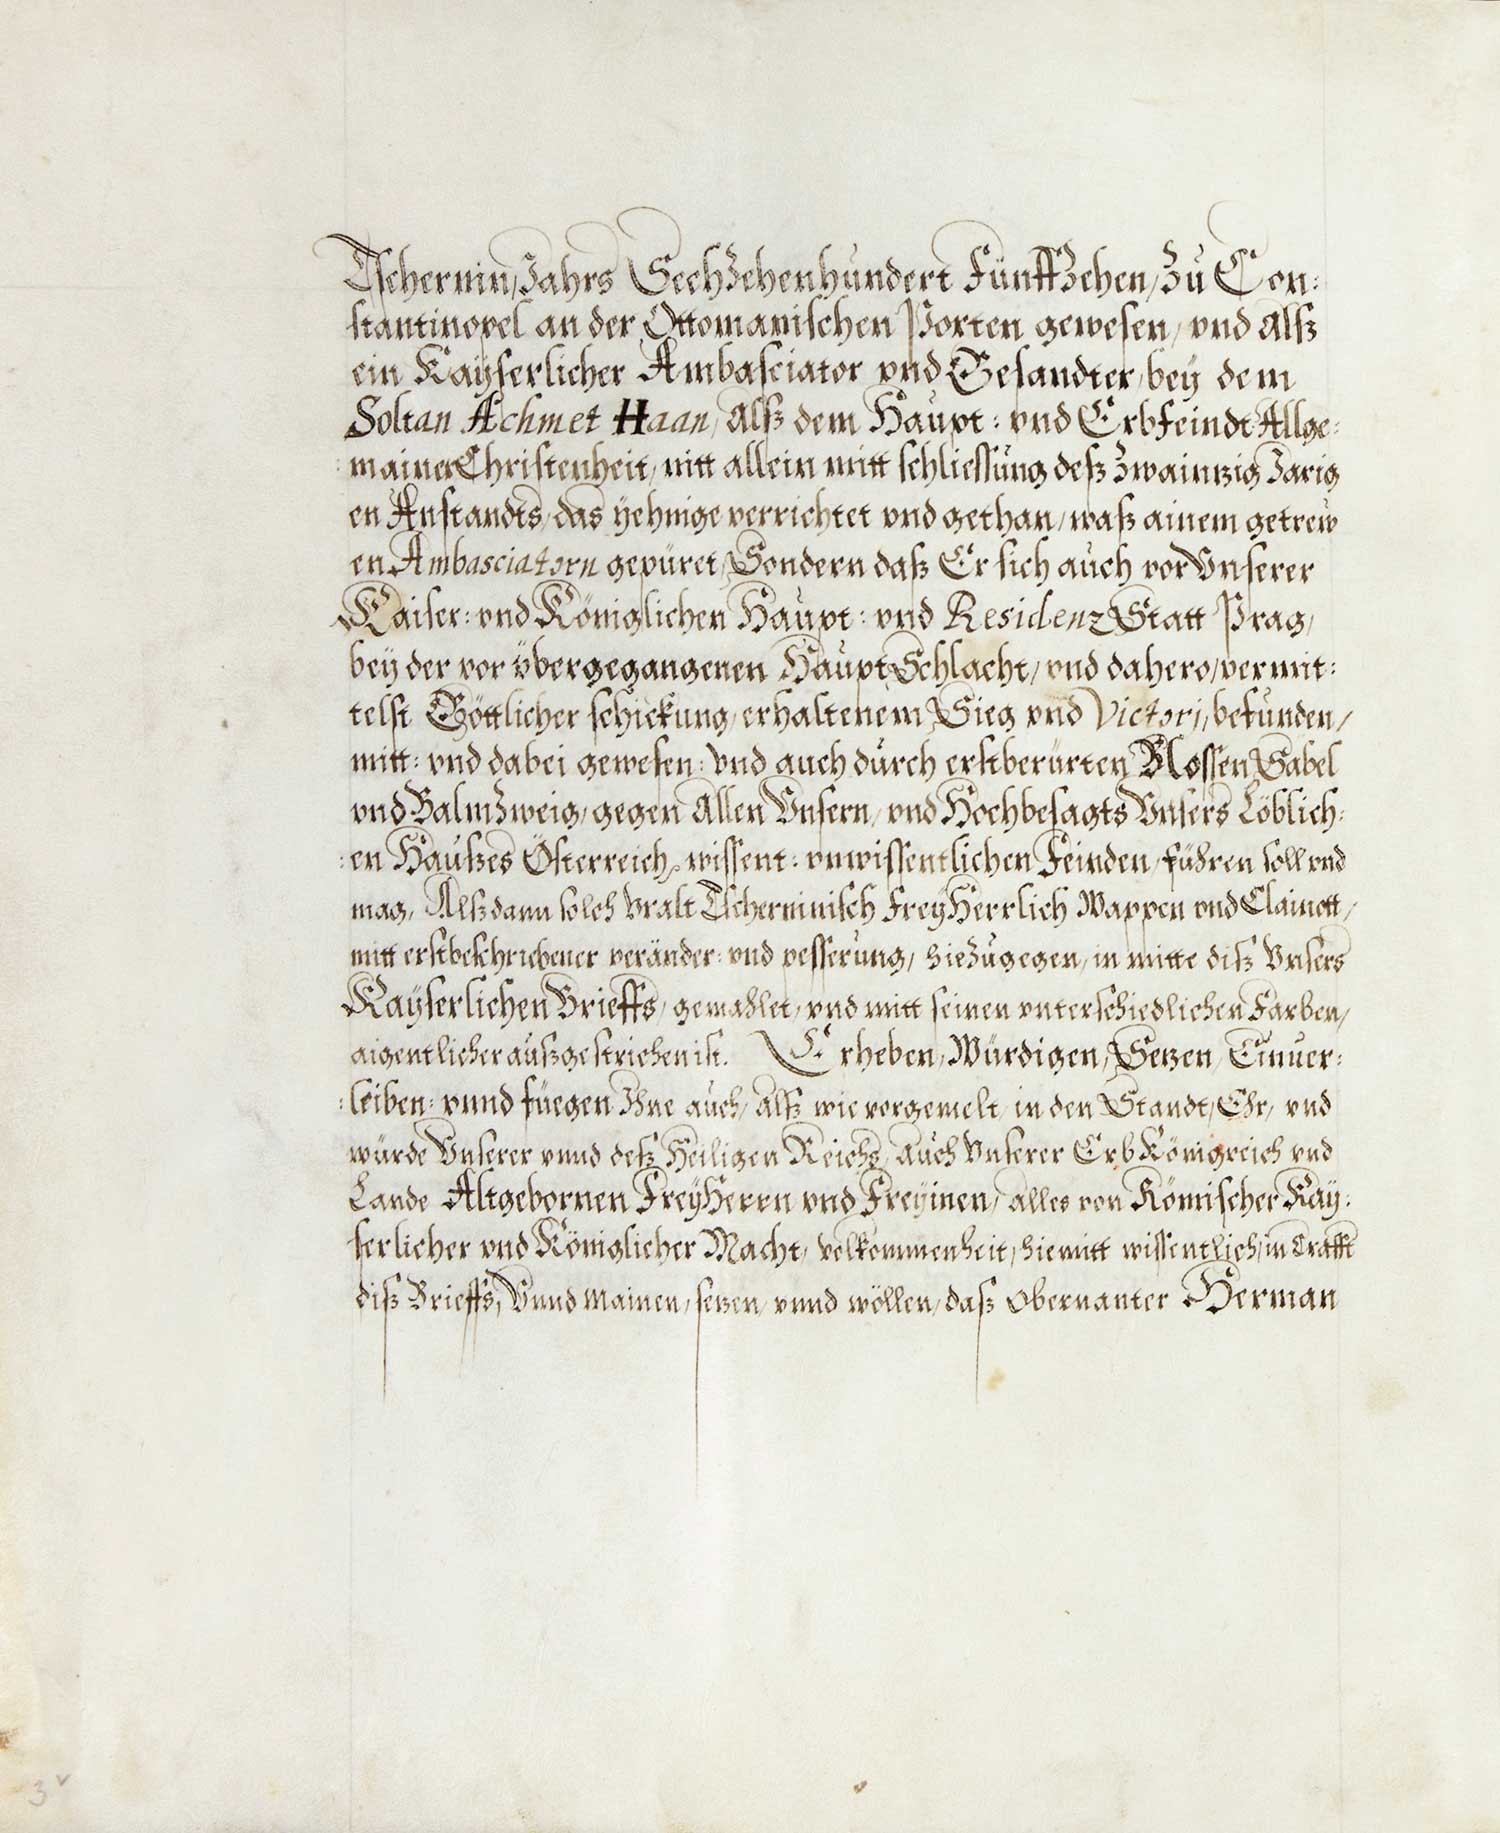 Tschernin, Jahrs Sechzehenhundert Fünffzehen, zu Con:
stantinopel an der Ottomanischen Porten gewesen, vnd Alß
ein Kayserlicher Ambasciator vnd Gesandter, bey dem
Soltan Achmet Haan, Alß dem Haupt: vnd Erbfeindt Allge:
mainer Christenheit, nitt allein mitt schliessung deß zwaintzig Jarig
en Anstandts, das yehnige verrichtet vnd gethan, waß ainem getrew
en Ambasciatorn gepüret, Sondern daß Er sich auch vor Vnserer
Kaiser: vnd Königlichen Haupt: vnd Residenz Statt Prag,
bey der vor übergegangenen Haupt Schlacht, vnd dahero, vermit:
telst Göttlicher schickung, erhaltenem Sieg vnd Victori, befunden,
mitt: vnd dabei gewesen: Vnd auch durch erstberürten Blossen Säbel
vnd Palmzweig, gegen Allen Vnsern, vnd Hochbesagts Vnsers Löblich:
:en Haußes Österreich, wissent: vnwissentlichen Feinden, führen soll vnd
mag, Alßdann solch Vralt Tscherninisch FreyHerrlich Wappen vnd Clainett,
mitt erstbeschriebener veränder: vnd pesserung, hiezugegen, in mitte diß Vnsers
Kayserlichen Brieffs, gemahlet, vnd mitt seinen vnterschiedlichen Farben,
aigentlicher außgestriechen ist. Erheben, Würdigen, Setzen, Einuer:
:leiben: vnnd füegen Ihne auch, Alß wie vorgemelt, in den Standt, Ehr, vnd
würde Vnserer vnnd deß Heiligen Reichs, Auch Vnserer Erb Königreich vnd
Lande Altgebornen FreyHerrn vnd Freyinen, Alles von Römischer Kay:
serlicher vnd Königlicher Macht, volkommenheit, hiemitt wissentlich, in Crafft
diß Brieffs, Vnnd mainen, setzen, vnnd wöllen, daß obernanter Herman
3v